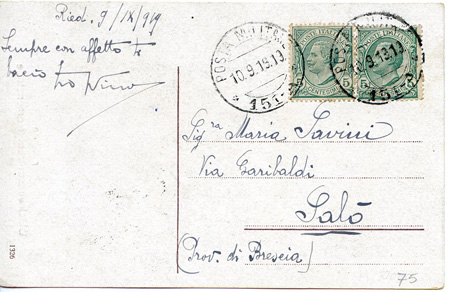 Ried, 9/IX/919
Sempre con affetto ti
bacio tuo Nino
POSTA MILITARE
10.9.19.13
151
POSTE ITALIANE
CENTESIMI
10.9.19.13
151
Sig.ra Maria Savini
Via Garibaldi
Salò
(Prov. di Brescia)
1326
75